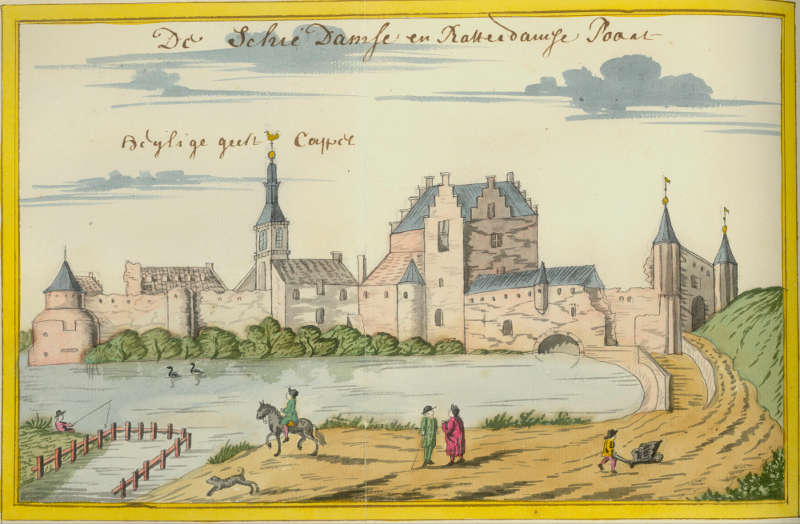 De Schie Damse en Rotterdamse Poort
Heylige geest Cappel